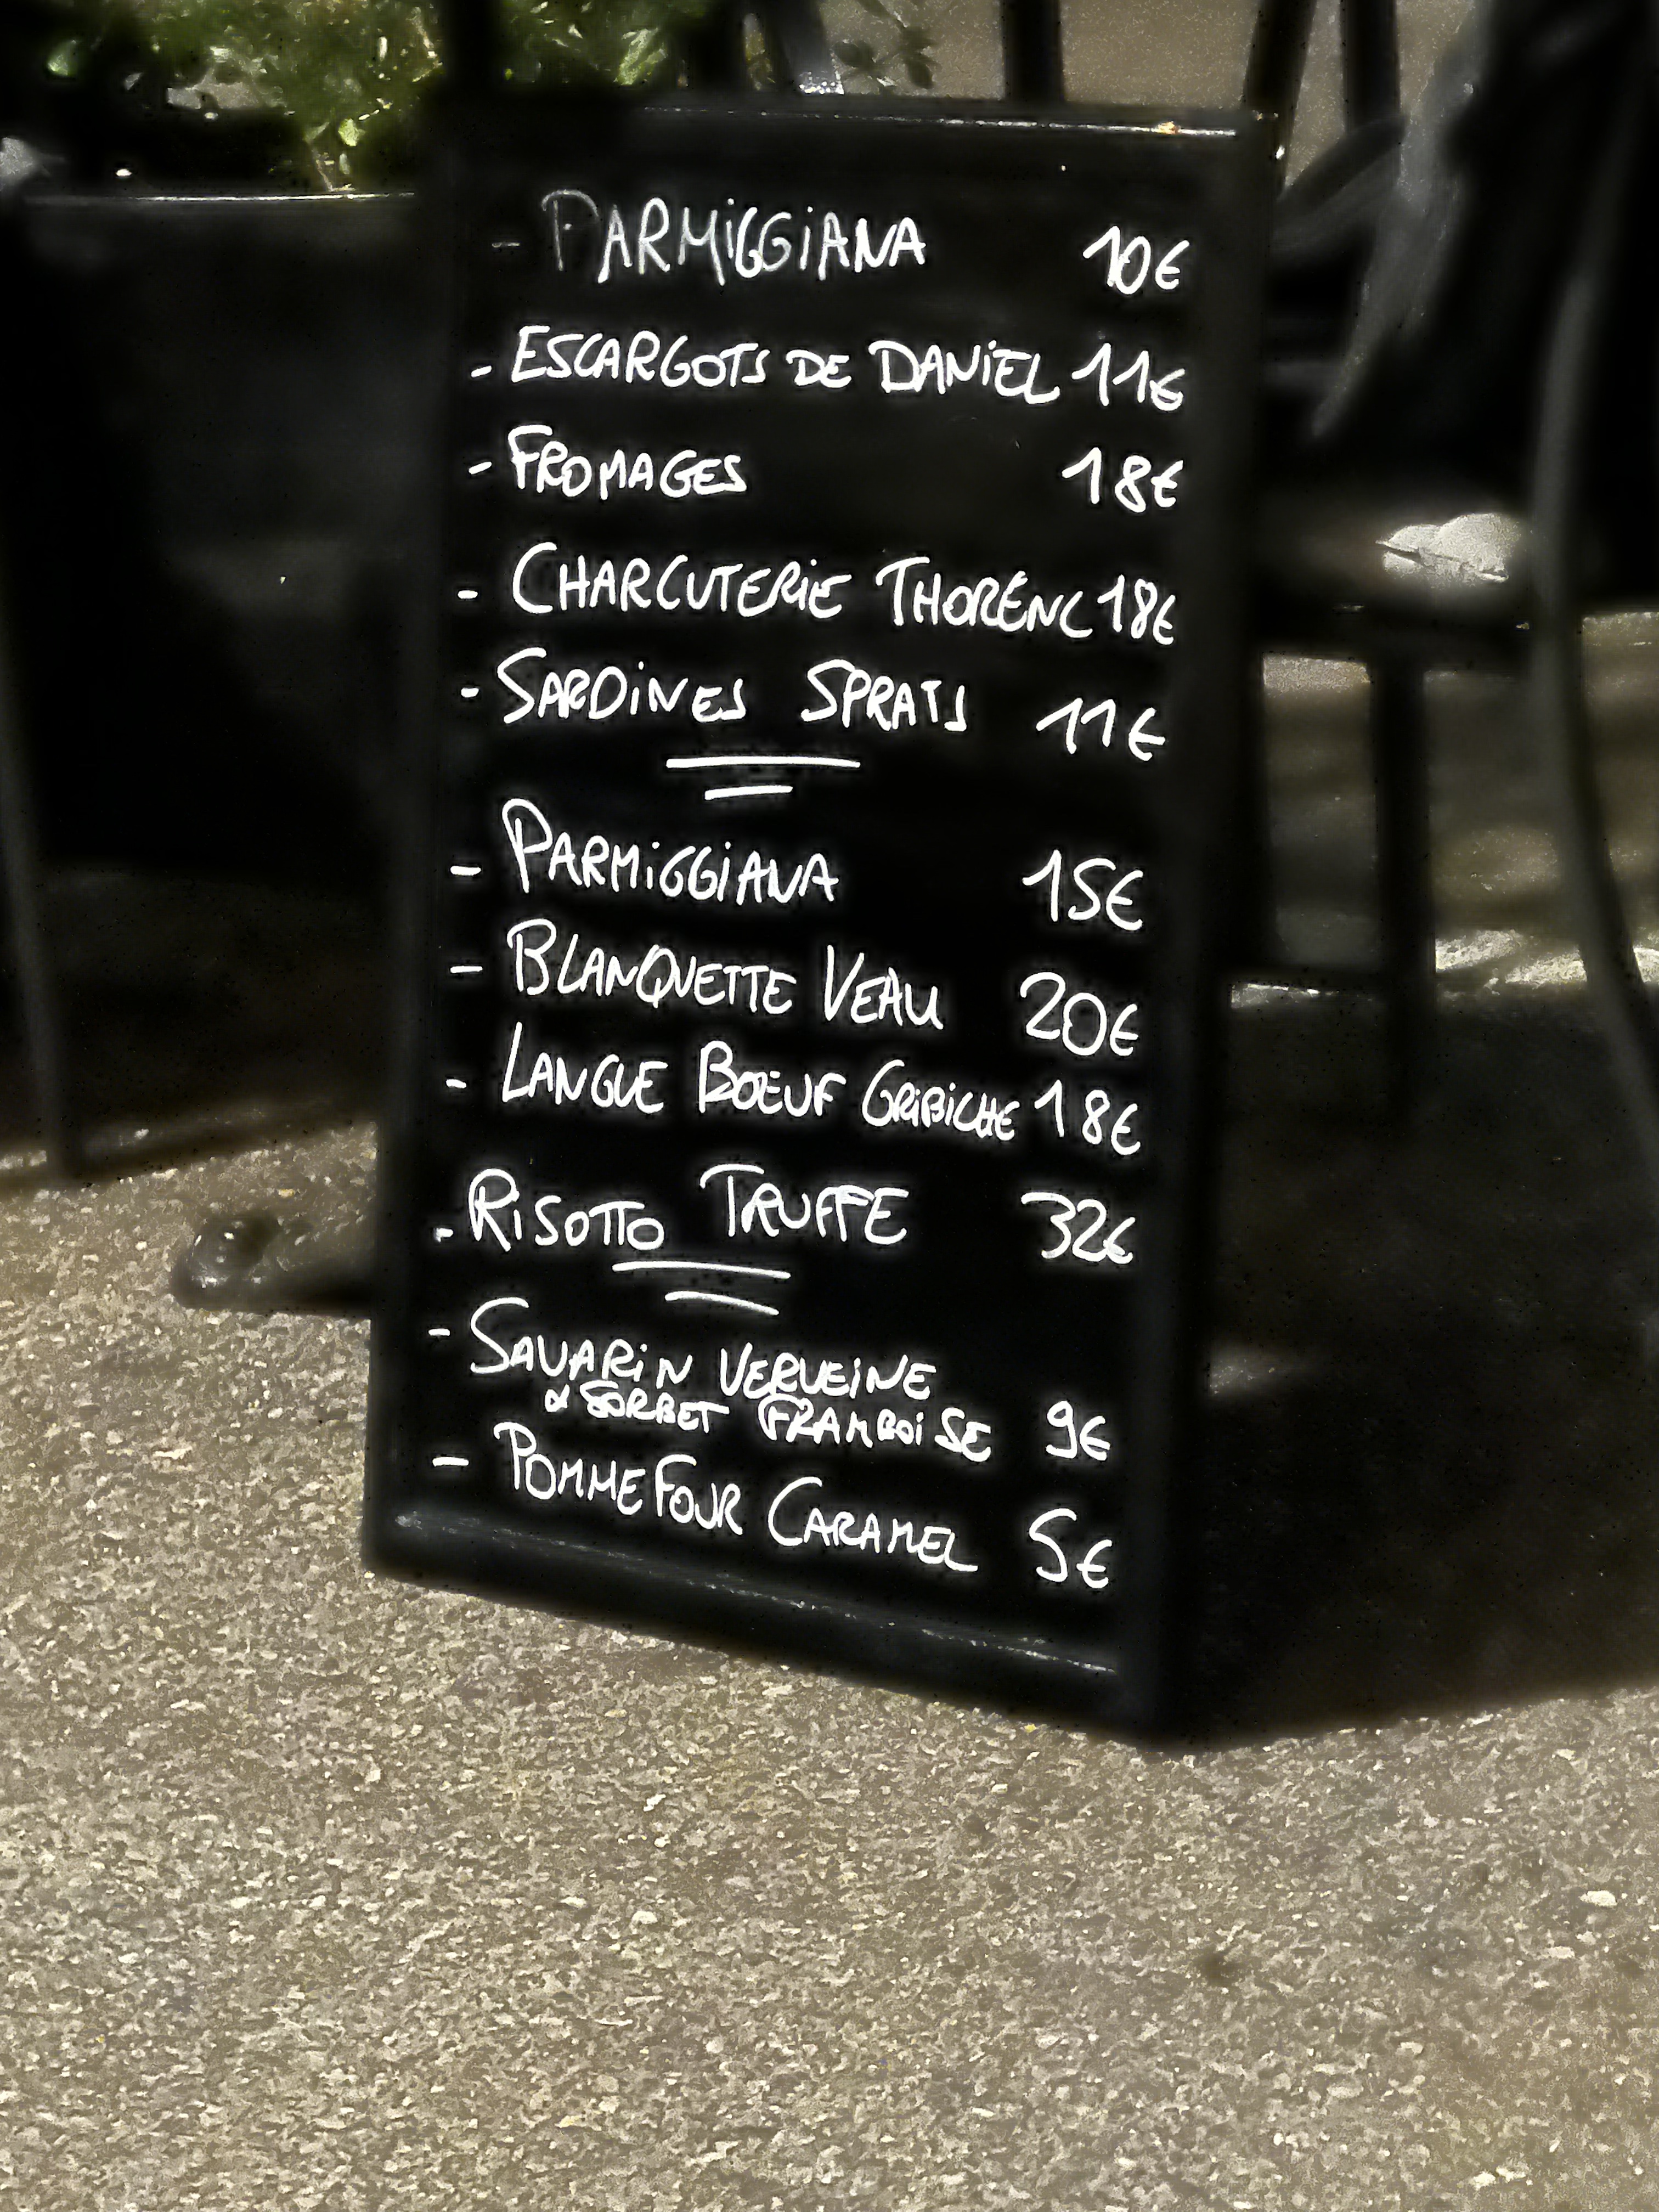 - PARMiGGiANA 10€
- ESCARGOTS DE DANiEL 11€
- FROMAGES 18€
- CHARCUTERiE THORÉNC 18€
- SARDiNES SPRATS 11€
- PARMiGGiANA 15€
- BLANQUETTE VEAU 20€
- LANGUE BOEUF GRiBiCHE 18€
- RiSOTTO TRUFFE 32€
- SAVARiN VERVEiNE
& SORBET FRAMBOiSE 9€
- POMME FOUR CARAMEL 5€